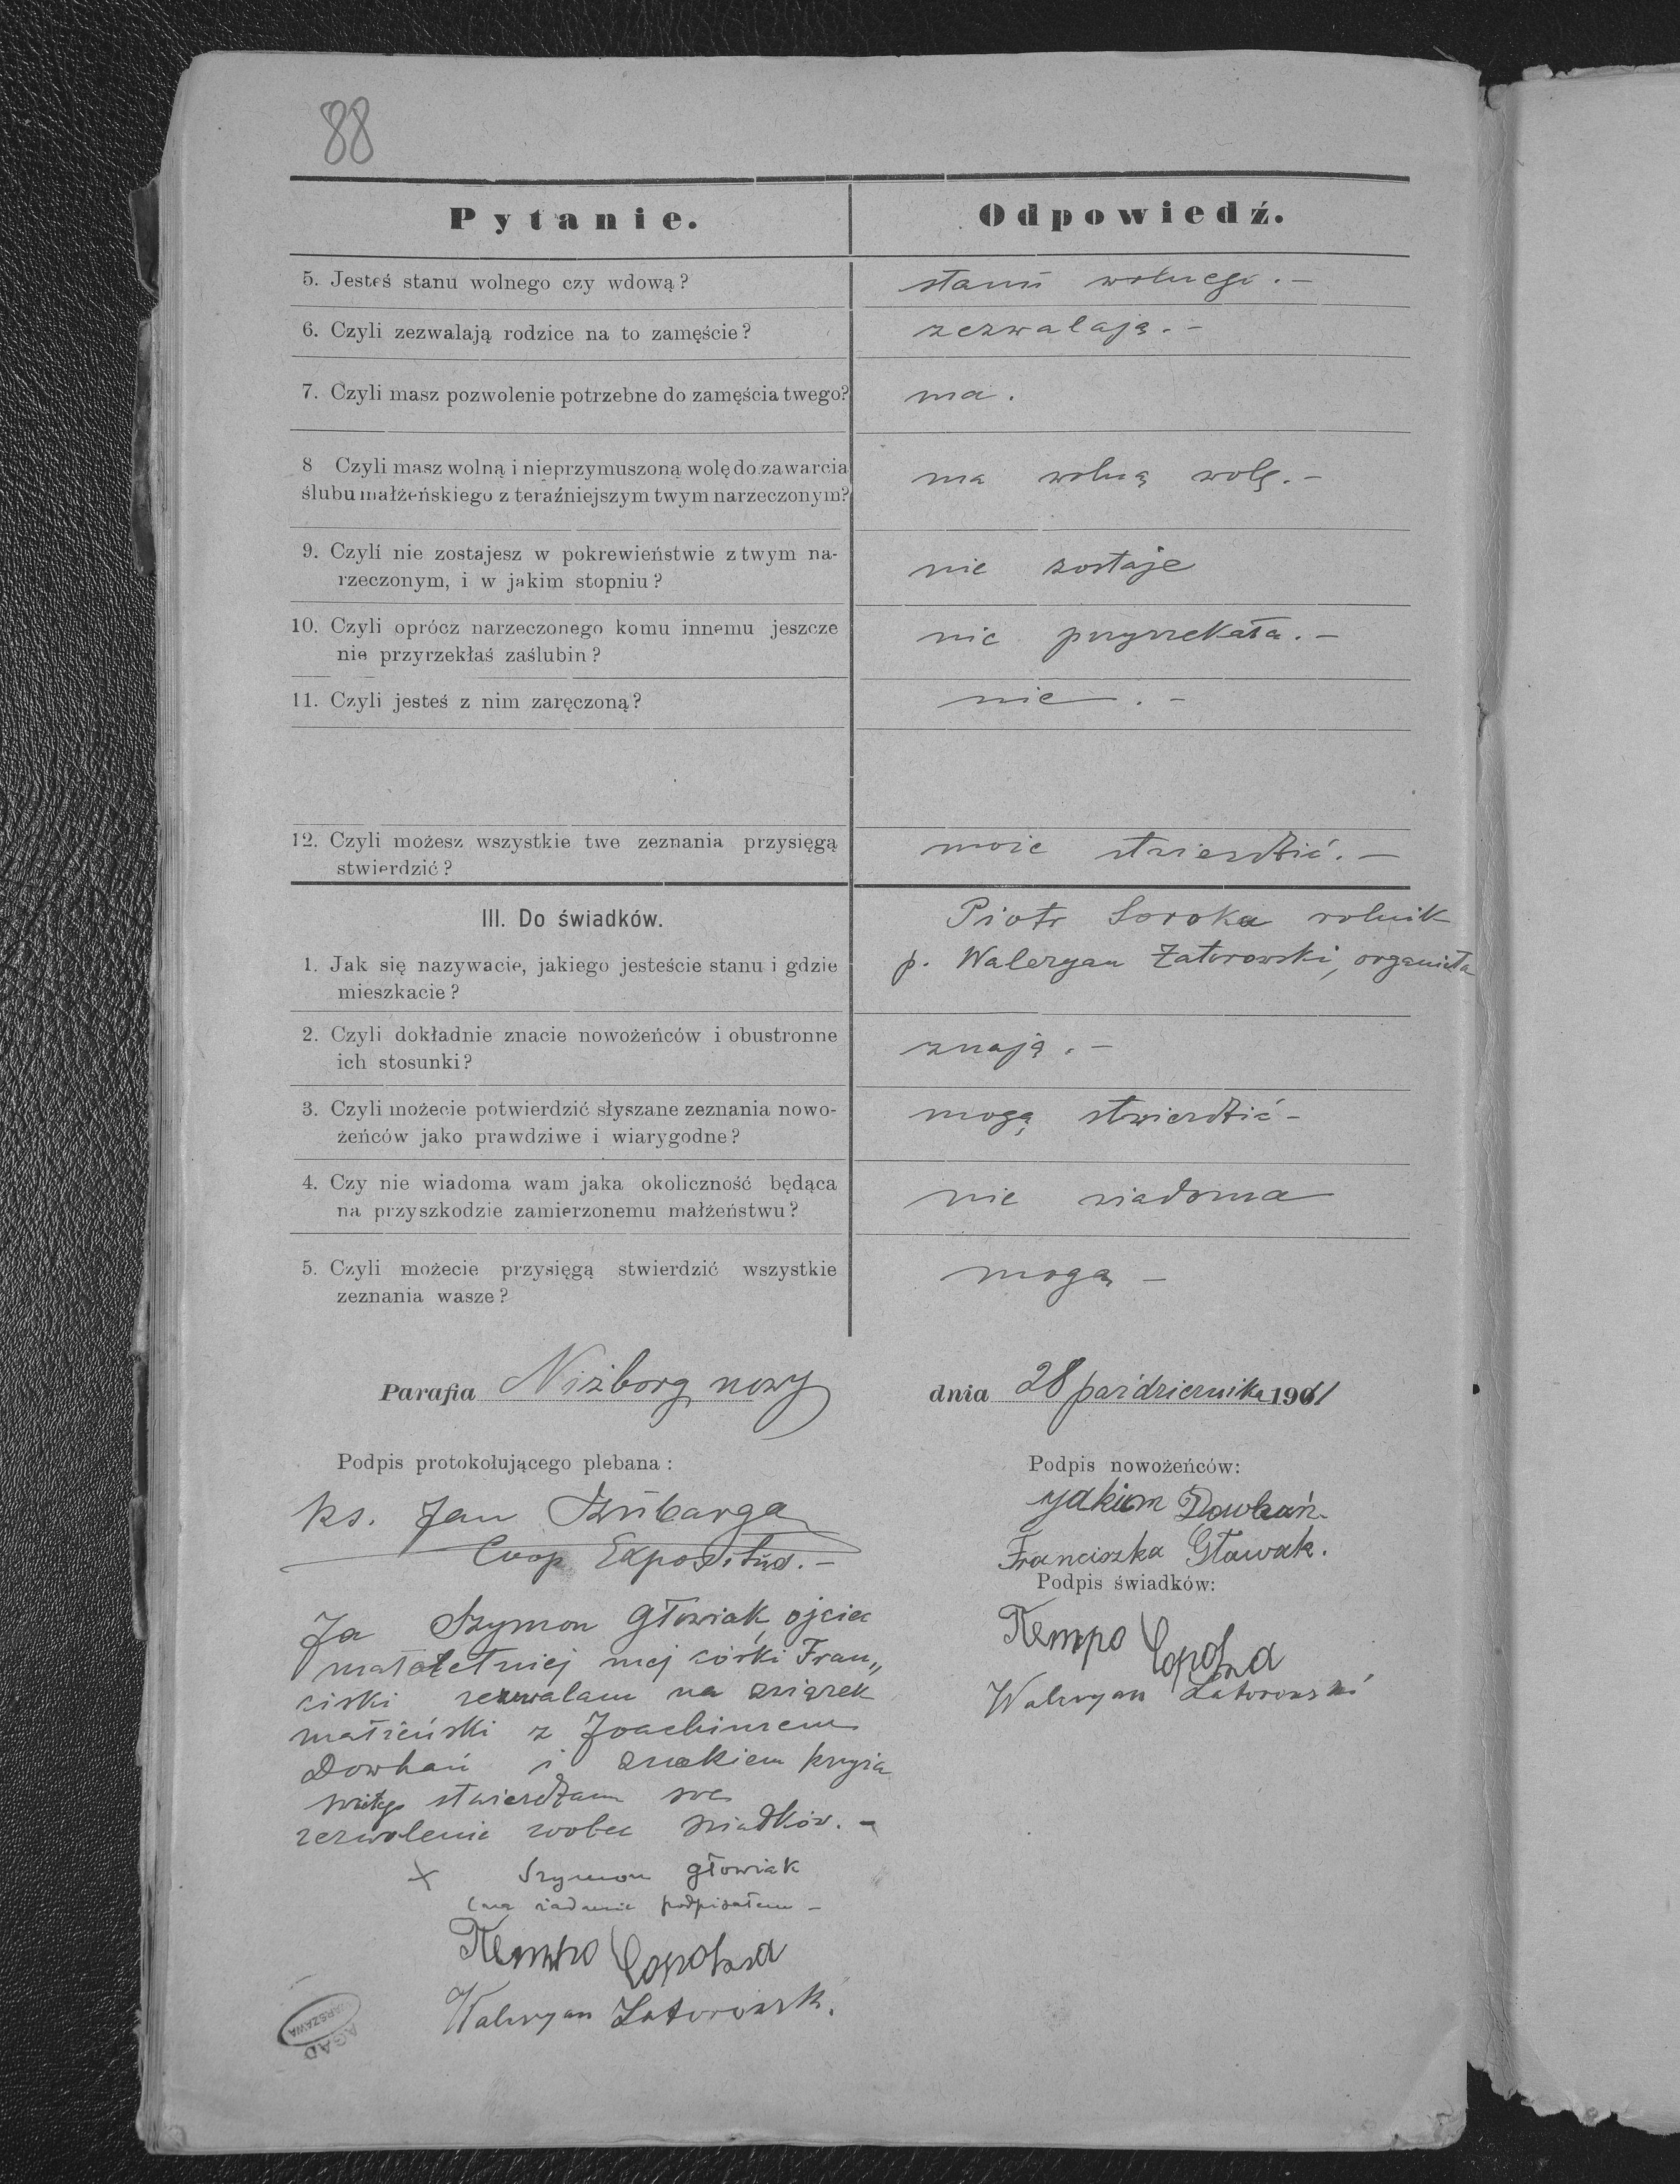 88
Pytanie. Odpowiedź.
5. Jesteś stanu wolnego czy wdową? stanu wolnego.-
6. Czyli zezwalają rodzice na to zamęście? zezwalają.-
7. Czyli masz pozwolenie potrzebne do zamęścia twego? ma.
8 Czyli masz wolną i nieprzymuszoną wolę do zawarcia
ślubu małżeńskiego z teraźniejszym twym narzeczonym? ma wolną wolę.-
9. Czyli nie zostajesz w pokrewieństwie z twym na-
rzeczonym, i w jakim stopniu? nie zostaje
10. Czyli oprócz narzeczonego komu innemu jeszcze
nie przyrzekłaś zaślubin? nie przyrzekała.-
11. Czyli jesteś z nim zaręczoną? nie.-
12. Czyli możesz wszystkie twe zeznania przysięgą
stwierdzić? może stwierdzić.-
III. Do świadków.
Piotr Soroka rolnik
1. Jak się nazywacie, jakiego jesteście stanu i gdzie
mieszkacie?
p. Waleryan Zatorowski, organista
2. Czyli dokładnie znacie nowożeńców i obustronne
ich stosunki? znają.-
3. Czyli możecie potwierdzić słyszane zeznania nowo-
żeńców jako prawdziwe i wiarygodne? mogą stwierdzić-
4. Czy nie wiadoma wam jaka okoliczność będąca
na przyszkodzie zamierzonemu małżeństwu? nie wiadoma
5. Czyli możecie przysięgą stwierdzić wszystkie
zeznania wasze? mogą -
Parafia Niżborg nowy dnia 28 października 1901
Podpis protokołującego plebana:
ks. Jan
Coop. Expositus.-
Podpis nowożeńców:
Dowhań.
Franciszka Gławak.
Podpis świadków:
Петро Сорока
Waleryan Zatorowski
Ja Szymon Głowiak, ojciec
małoletniej mej córki Fran„
ciski zezwalam na związek
małżeński z Joachimem
Dowhań i znakiem krzyża
świętego stwierdzam swe
zezwolenie wobec świadków.-
x Szymon Głowiak
(na żądanie podpisałem -
Петро Сорока
Waleryan Zatorowski.
AGAD
WARSZAWA